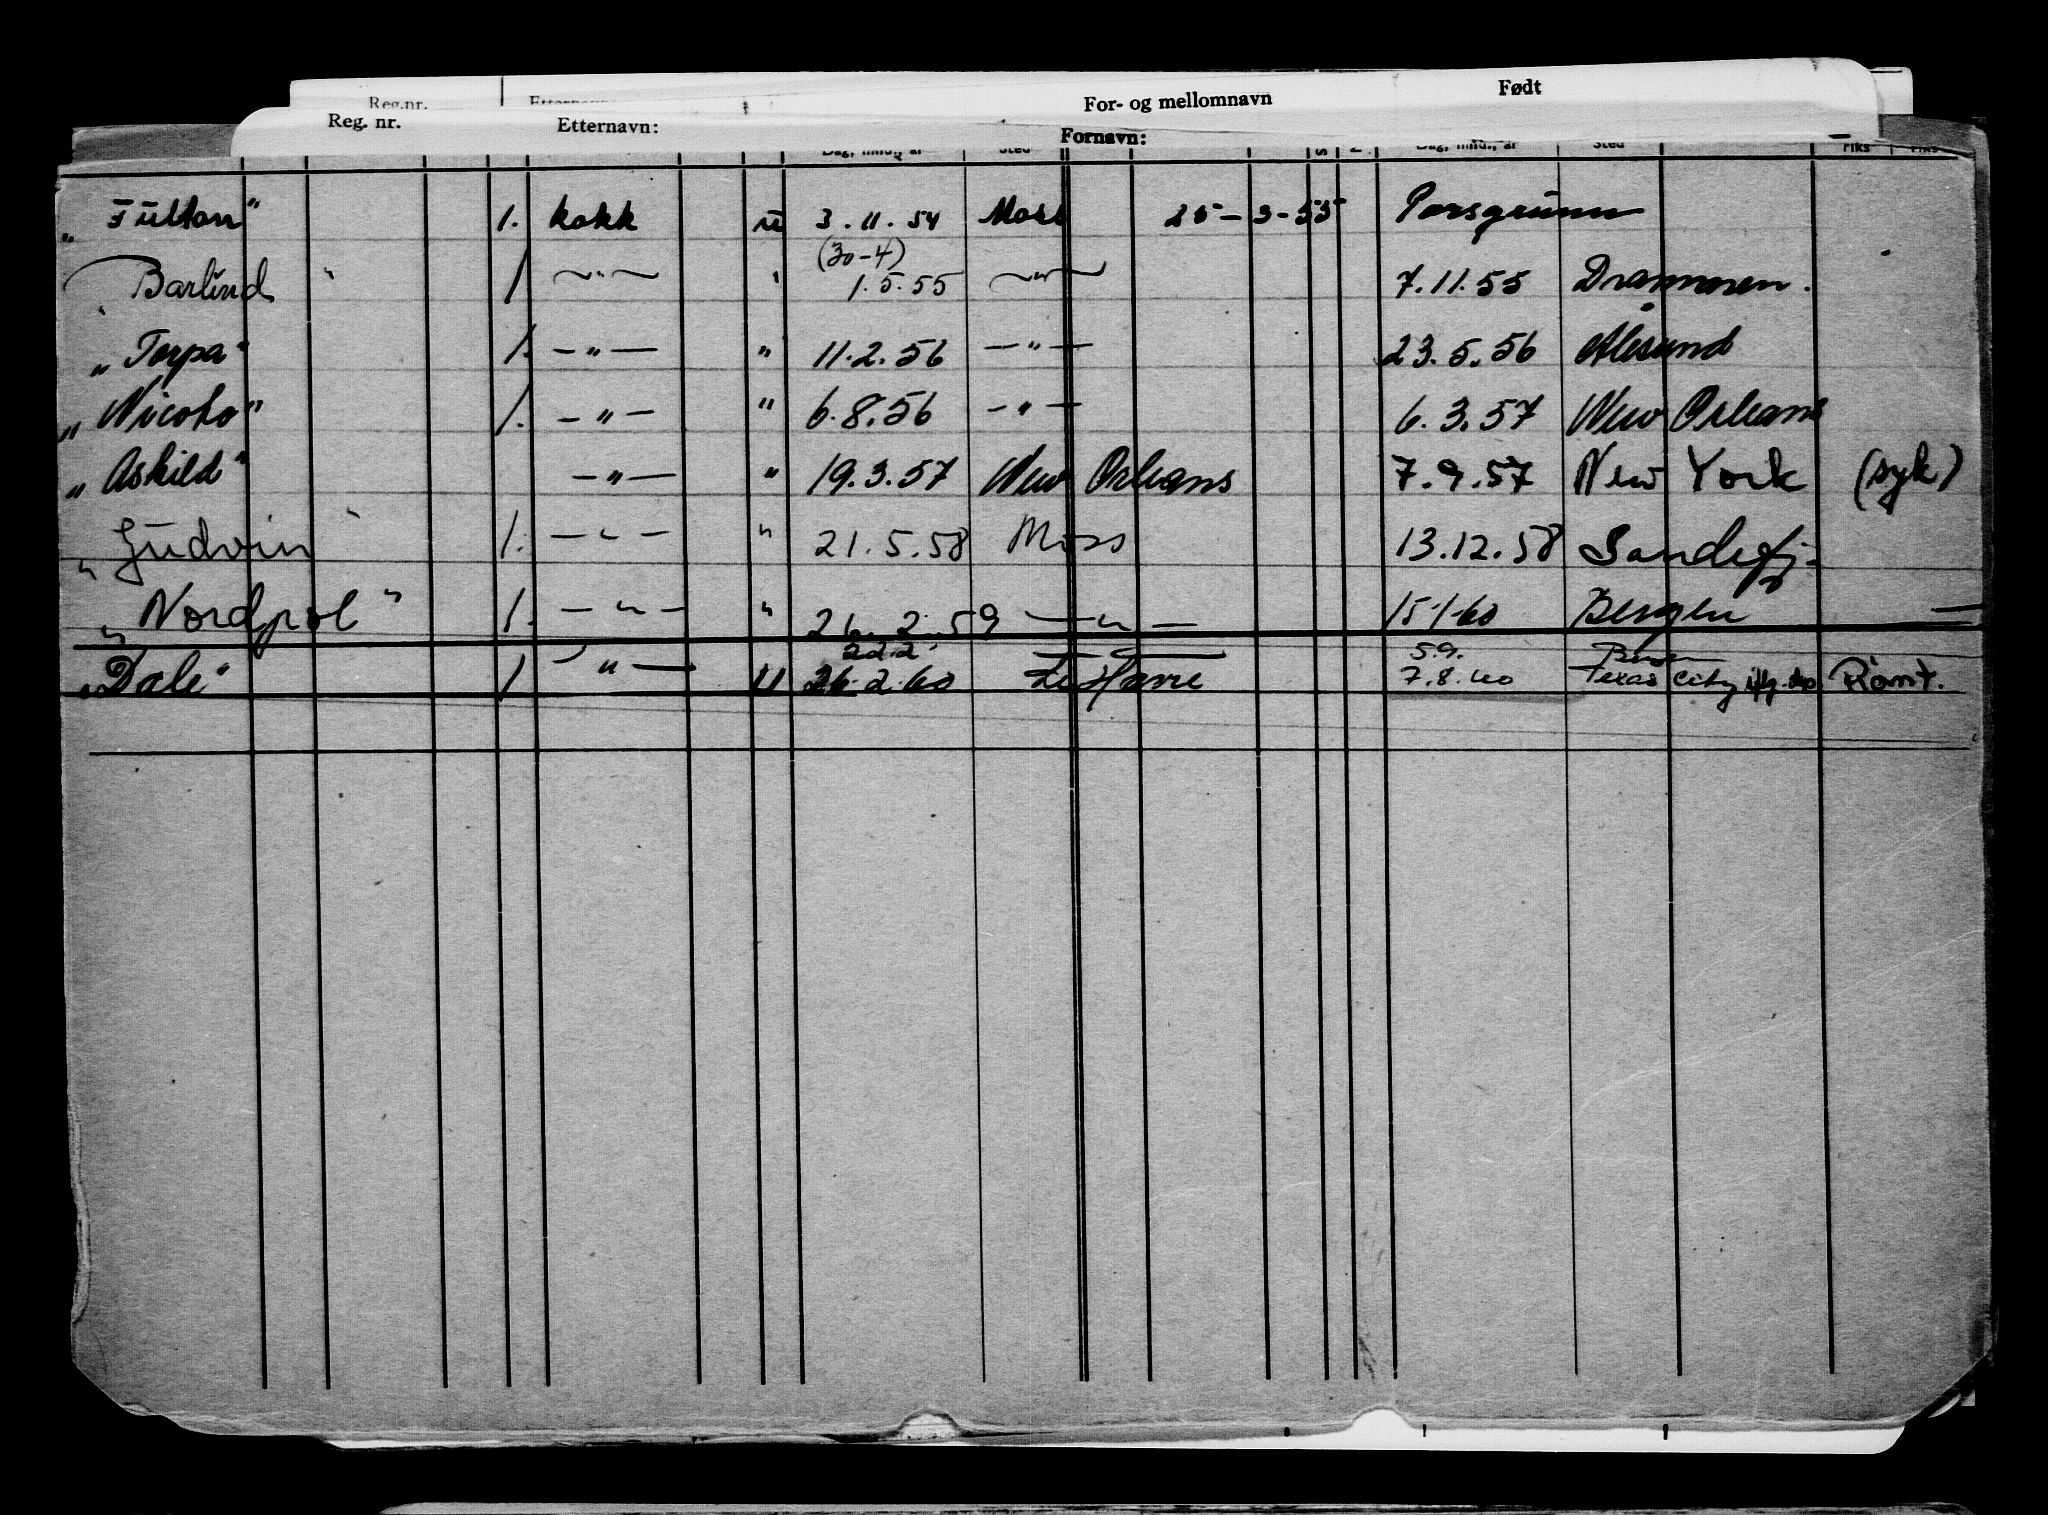 Reg.nr. For- og mellomnavn Født
Reg. nr. Etternavn: Fornavn:
Sted Sted
„Fulton" 1. kokk u 3.11.54 Moss 25-3-55 Porsgrunn
(30-4)
Barlind " 1 —"— " 1.5.55 —"— 7.11.55 Drammen.
„Torpa" 1. —"— " 11.2.56 —"— 23.5.56 Ålesund
„Nicoto" 1. —"— " 6.8.56 —"— 6.3.57 New Orleans
„Askild" —"— " 19.3.57 New Orleans 7.9.57 New York (syk)
„Gudvin" 1. —"— " 21.5.58 Moss 13.12.58 Sandefj.
„Nordpol" 1. —"— " 26.2.59 —"— 15-1-60 Bergen —
22.2. 5.9. Bergen
„Dale" 1 —"— u 26.2.60 Le Havre 7.8.60 Texas City